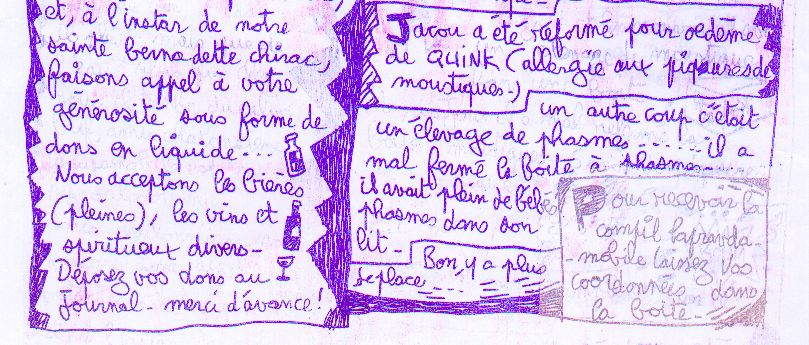 et, à l'instar de notre
sainte bernadette chirac,
faisons appel à votre
générosité sous forme de
dons en liquide...
Nous acceptons les bières
(pleines), les vins et
spiritueux divers-
Déposez vos dons au
Journal- merci d'avance!
Jacou a été réformé pour oedème
de QUINK (allergie aux piqures de
moustiques-)
un autre coup c'était
un élevage de phasmes......il a
mal fermé la boite à phasmes...
il avait plein de bébés
phasmes dans son
lit-
Bon, y a plus
de place....
Pour recevoir la
compil lapravda-
-mobile laissez vos
coordonnées dans
la boite-